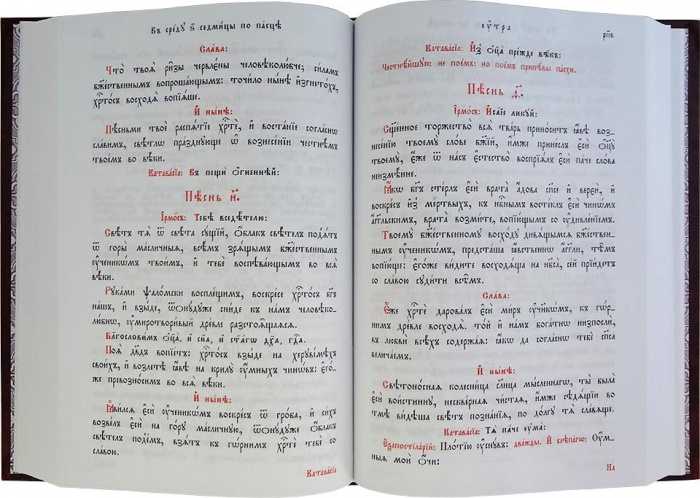 Въ среду ѕ҃ седмицы по пасцѣ
Сла́ва:
Что̀ твоѧ̑ ри̑зы червле́ны человѣколю́бче; си́ламъ
бж҃е́ственнымъ вопроша́ющымъ: точи́ло ны́нѣ и҆згнето́хъ,
хрⷭ҇то́съ восходѧ̀ вопїѧ́ше.
И҆ ны́нѣ:
Пѣ́сньми твоѐ распѧ́тїе хрⷭ҇тѐ, и҆ воста́нїе согла́снѡ
сла́вимъ, свѣ́тлѡ пра́зднующе ѡ҆ вознесе́нїи честнѣ́мъ
твое́мъ во вѣ́ки.
Катава́сїа: Въ пещѝ ѻ҆́гненнѣй:
Пѣ́снь и҃.
І҆рмо́съ: Тебѐ всѣдѣ́телю:
Свѣ́тъ тѧ̀ ѿ свѣ́та сꙋ́щїй, ѻ҆́блакъ свѣ́телъ под̾ѧ́тъ
ѿ горы̀ масли́чныѧ, всѣ̑мъ зрѧ́щымъ бж҃е́ствєннымъ
ᲂу҆ченикѡ́мъ твои̑мъ, и҆ тебѐ воспѣва́ющымъ во всѧ̑
вѣ́ки.
Рꙋка́ми ѱало́мски воспле́щимъ, воскре́се хрⷭ҇то́съ бг҃ъ
на́шъ, и҆ взы́де, ѿѻнꙋ́дꙋже сни́де къ на́мъ человѣко-
лю́бнѡ, ᲂу҆миротвори́вый дре́вле разстоѧ́щаѧсѧ.
Благослови́мъ ѻ҆ц҃а̀, и҆ сн҃а, и҆ ст҃а́го дх҃а, гдⷭ҇а.
Поѧ̀ дв҃дъ вопїе́тъ: хрⷭ҇то́съ взы́де на херꙋві́мѣхъ
свои́хъ, и҆ возлетѣ̀ ꙗ҆́вѣ на крилꙋ̀ ᲂу҆́мныхъ чинѡ́въ: є҆го́-
же превозно́симъ во всѧ̑ вѣ́ки.
И҆ ны́нѣ:
Ꙗ҆ви́лсѧ є҆сѝ ᲂу҆ченикѡ́мъ воскре́съ ѿ гро́ба, и҆ си́хъ
возва́лъ є҆сѝ на го́рꙋ масли́чнꙋю, ѿѻнꙋ́дꙋже ѻ҆́блакъ
свѣ́телъ под̾е́мъ, взѧ́тъ къ гѡ́рнимъ хрⷭ҇тѐ тебѐ со
сла́вою.
Катава́сїа
ᲂу҆́тра
рп҃в
Катава́сїа: И҆з̾ ѻ҆ц҃а̀ пре́жде вѣ̑къ:
Честнѣ́йшꙋю: не пое́мъ: но пое́мъ припѣ́вы па́схи.
Пѣ́снь
І҆рмо́съ: И҆са́їе ликꙋ́й:
Сщ҃е́нное торжество̀ всѧ̀ тва́рь прино́ситъ ꙗ҆́вѣ воз-
несе́нїю твоемꙋ̀ сло́ве бж҃їй, и҆́мже прине́слъ є҆сѝ ѻ҆ц҃ꙋ̀
твоемꙋ̀, є҆́же ѿ на́съ є҆стество̀ воспрїѧ́лъ є҆сѝ па́че сло́ва
неизмѣ́нне.
Ꙗ҆́кѡ бо стерлъ є҆сѝ врата̀ а҆́дова сп҃се и҆ верєѝ, и҆
воскре́съ и҆з̾ ме́ртвыхъ, къ нб҃нымъ восте́клъ є҆сѝ чинѡ́мъ
а҆́гг҃льскимъ, врата̀ возми́те, вопїю́щымъ со ᲂу҆дивле́нїемъ.
Твоемꙋ̀ бж҃е́ственномꙋ восхо́дꙋ дивѧ́щымсѧ бж҃е́ствен-
нымъ ᲂу҆ченикѡ́мъ, предста́ша ꙗ҆́вственнѡ а҆́гг҃ли, тѣ̑мъ
вопїю́ще: є҆го́же ви́дите восходѧ́ща на нб҃са̀, се́й прїи́детъ
со сла́вою сꙋди́ти всѣ̑мъ.
Сла́ва:
Є҆́же хрⷭ҇тѐ дарова́лъ є҆сѝ ми́ръ ᲂу҆ч҃нкѡ́мъ, къ гѡ́р-
нимъ дре́вле восходѧ̀. то́й и҆ на́мъ бога́тнѡ низпослѝ,
въ любвѝ всѣ́хъ содержа̀: ꙗ҆́кѡ да согла́снѡ тебѐ сп҃са
велича́емъ.
И҆ ны́нѣ:
Свѣтоно́снаѧ колесни́ца сл҃нца мы́сленнагѡ, ты̀ была̀
є҆сѝ вои́стиннꙋ, нескве́рнаѧ чⷭ҇таѧ, и҆́мже сѣдѧ́щїи во
тмѣ̀ ви́дѣша свѣ́тъ позна́нїѧ, по до́лгꙋ тѧ̀ сла́вѧще.
Катава́сїа: Тѧ̀ па́че ᲂу҆ма̀:
Є҆ѯапостїла́рїй: Пло́тїю ᲂу҆снꙋ́въ: два́жды. И҆ слѣпа́гѡ: ᲂу҆́м-
ныѧ мои̑ ѻ҆́чи:
На